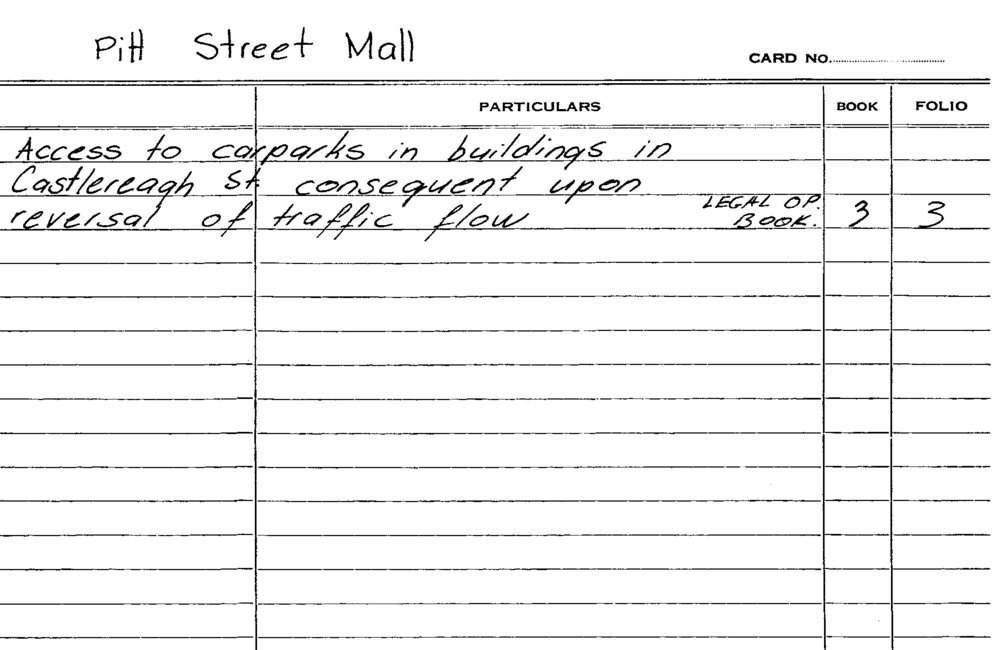 Pitt Street Mall
CARD NO.
PARTICULARS BOOK FOLIO
Access to carparks in buildings in
Castlereagh St. consequent upon
reversal of traffic flow LEGAL OP. BOOK. 3 3